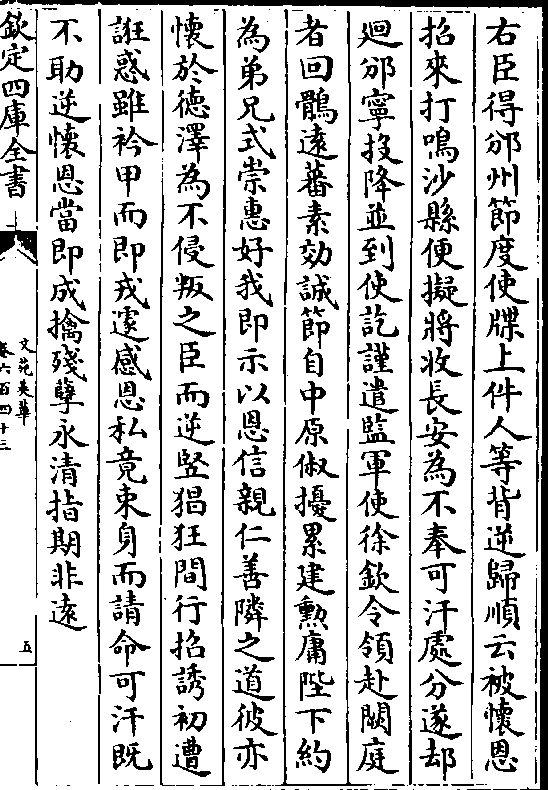 右臣得邠州節度使牒上件人等背逆歸順云被懷恩
招來打鳴沙縣便擬將收長安為不奉可汗處分遂却
廻邠寧投降並到使訖謹遣監軍使徐欽令領赴闕庭
者回鶻遠蕃素効誠節自中原俶擾累建勲庸陛下約
為弟兄式崇惠好我即示以恩信親仁善隣之道彼亦
懷於德澤為不侵叛之臣而逆竪猖狂間行招誘初遭
誑惑雖衿甲而即戎遽感恩私竟束身而請命可汗既
不助逆懷恩當即成擒殘孽永清指期非遠
欽定四庫全書
文苑英華
卷六百四十三
五